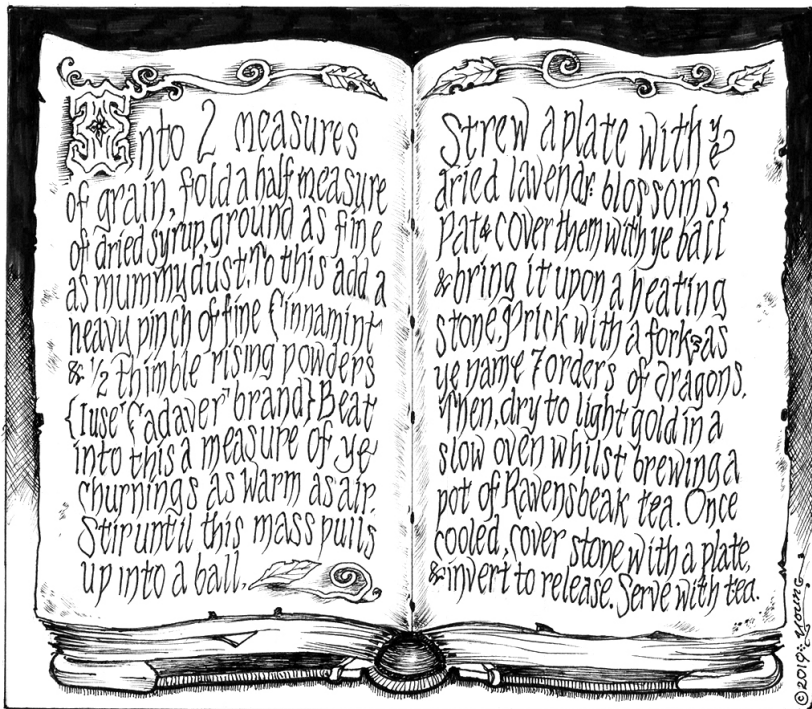 Into 2 measures
of grain, fold a half measure
of dried syrup, ground as fine
as mummy dust. To this add a
heavy pinch of fine Cinnamint
& 1/2 thimble rising powders
{I use "Cadaver" brand} Beat
into this a measure of ye
churnings as warm as air.
Stir until this mass pulls
up into a ball.
Strew a plate with ye
dried lavendr. blossoms,
Pat & cover them with ye ball
& bring it upon a heating
stone. Prick with a fork as
ye name 7 orders of dragons.
Then, dry to light gold in a
slow oven whilst brewing a
pot of Ravensbeak tea. Once
cooled, cover stone with a plate,
& invert to release. Serve with tea.
©2010